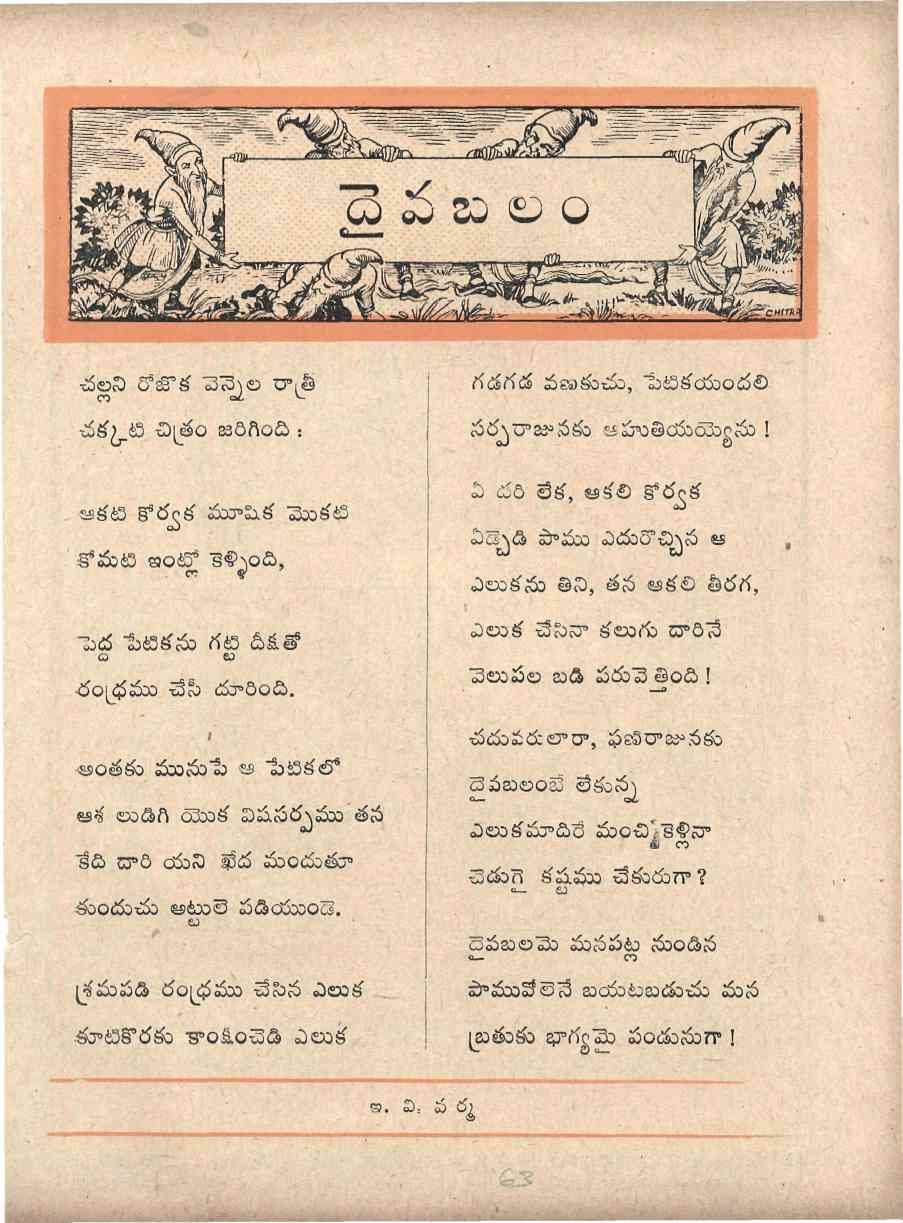 దైవబలం
CHITRA
చల్లని రోజొక వెన్నెల రాత్రి
చక్కటి చిత్రం జరిగింది :
ఆకటి కోర్వక మూషిక మొకటి
కోమటి ఇంట్లో కెళ్ళింది,
పెద్ద పేటికను గట్టి దీక్షతో
రంధ్రము చేసి దూరింది.
అంతకు మునుపే ఆ పేటికలో
ఆశ లుడిగి యొక విషసర్పము తన
కేది దారి యని ఖేద మందుతూ
కుందుచు అట్టులె పడియుండె.
శ్రమపడి రంధ్రము చేసిన ఎలుక
కూటికొరకు కాంక్షించెడి ఎలుక
గడగడ వణుకుచు, పేటికయందలి
సర్పరాజునకు ఆహుతియయ్యెను !
ఏ దరి లేక, ఆకలి కోర్వక
ఏడ్చెడి పాము ఎదురొచ్చిన ఆ
ఎలుకను తిని, తన ఆకలి తీరగ,
ఎలుక చేసినా కలుగు దారినే
వెలుపల బడి పరువెత్తింది !
చదువరులారా, ఫణిరాజునకు
దైవబలంబే లేకున్న
ఎలుకమాదిరే మంచికెళ్లినా
చెడుగై కష్టము చేకురుగా ?
దైవబలమె మనపట్ల నుండిన
పామువోలెనే బయటబడుచు మన
బ్రతుకు భాగ్యమై పండునుగా !
ఇ. వి. వర్మ
63